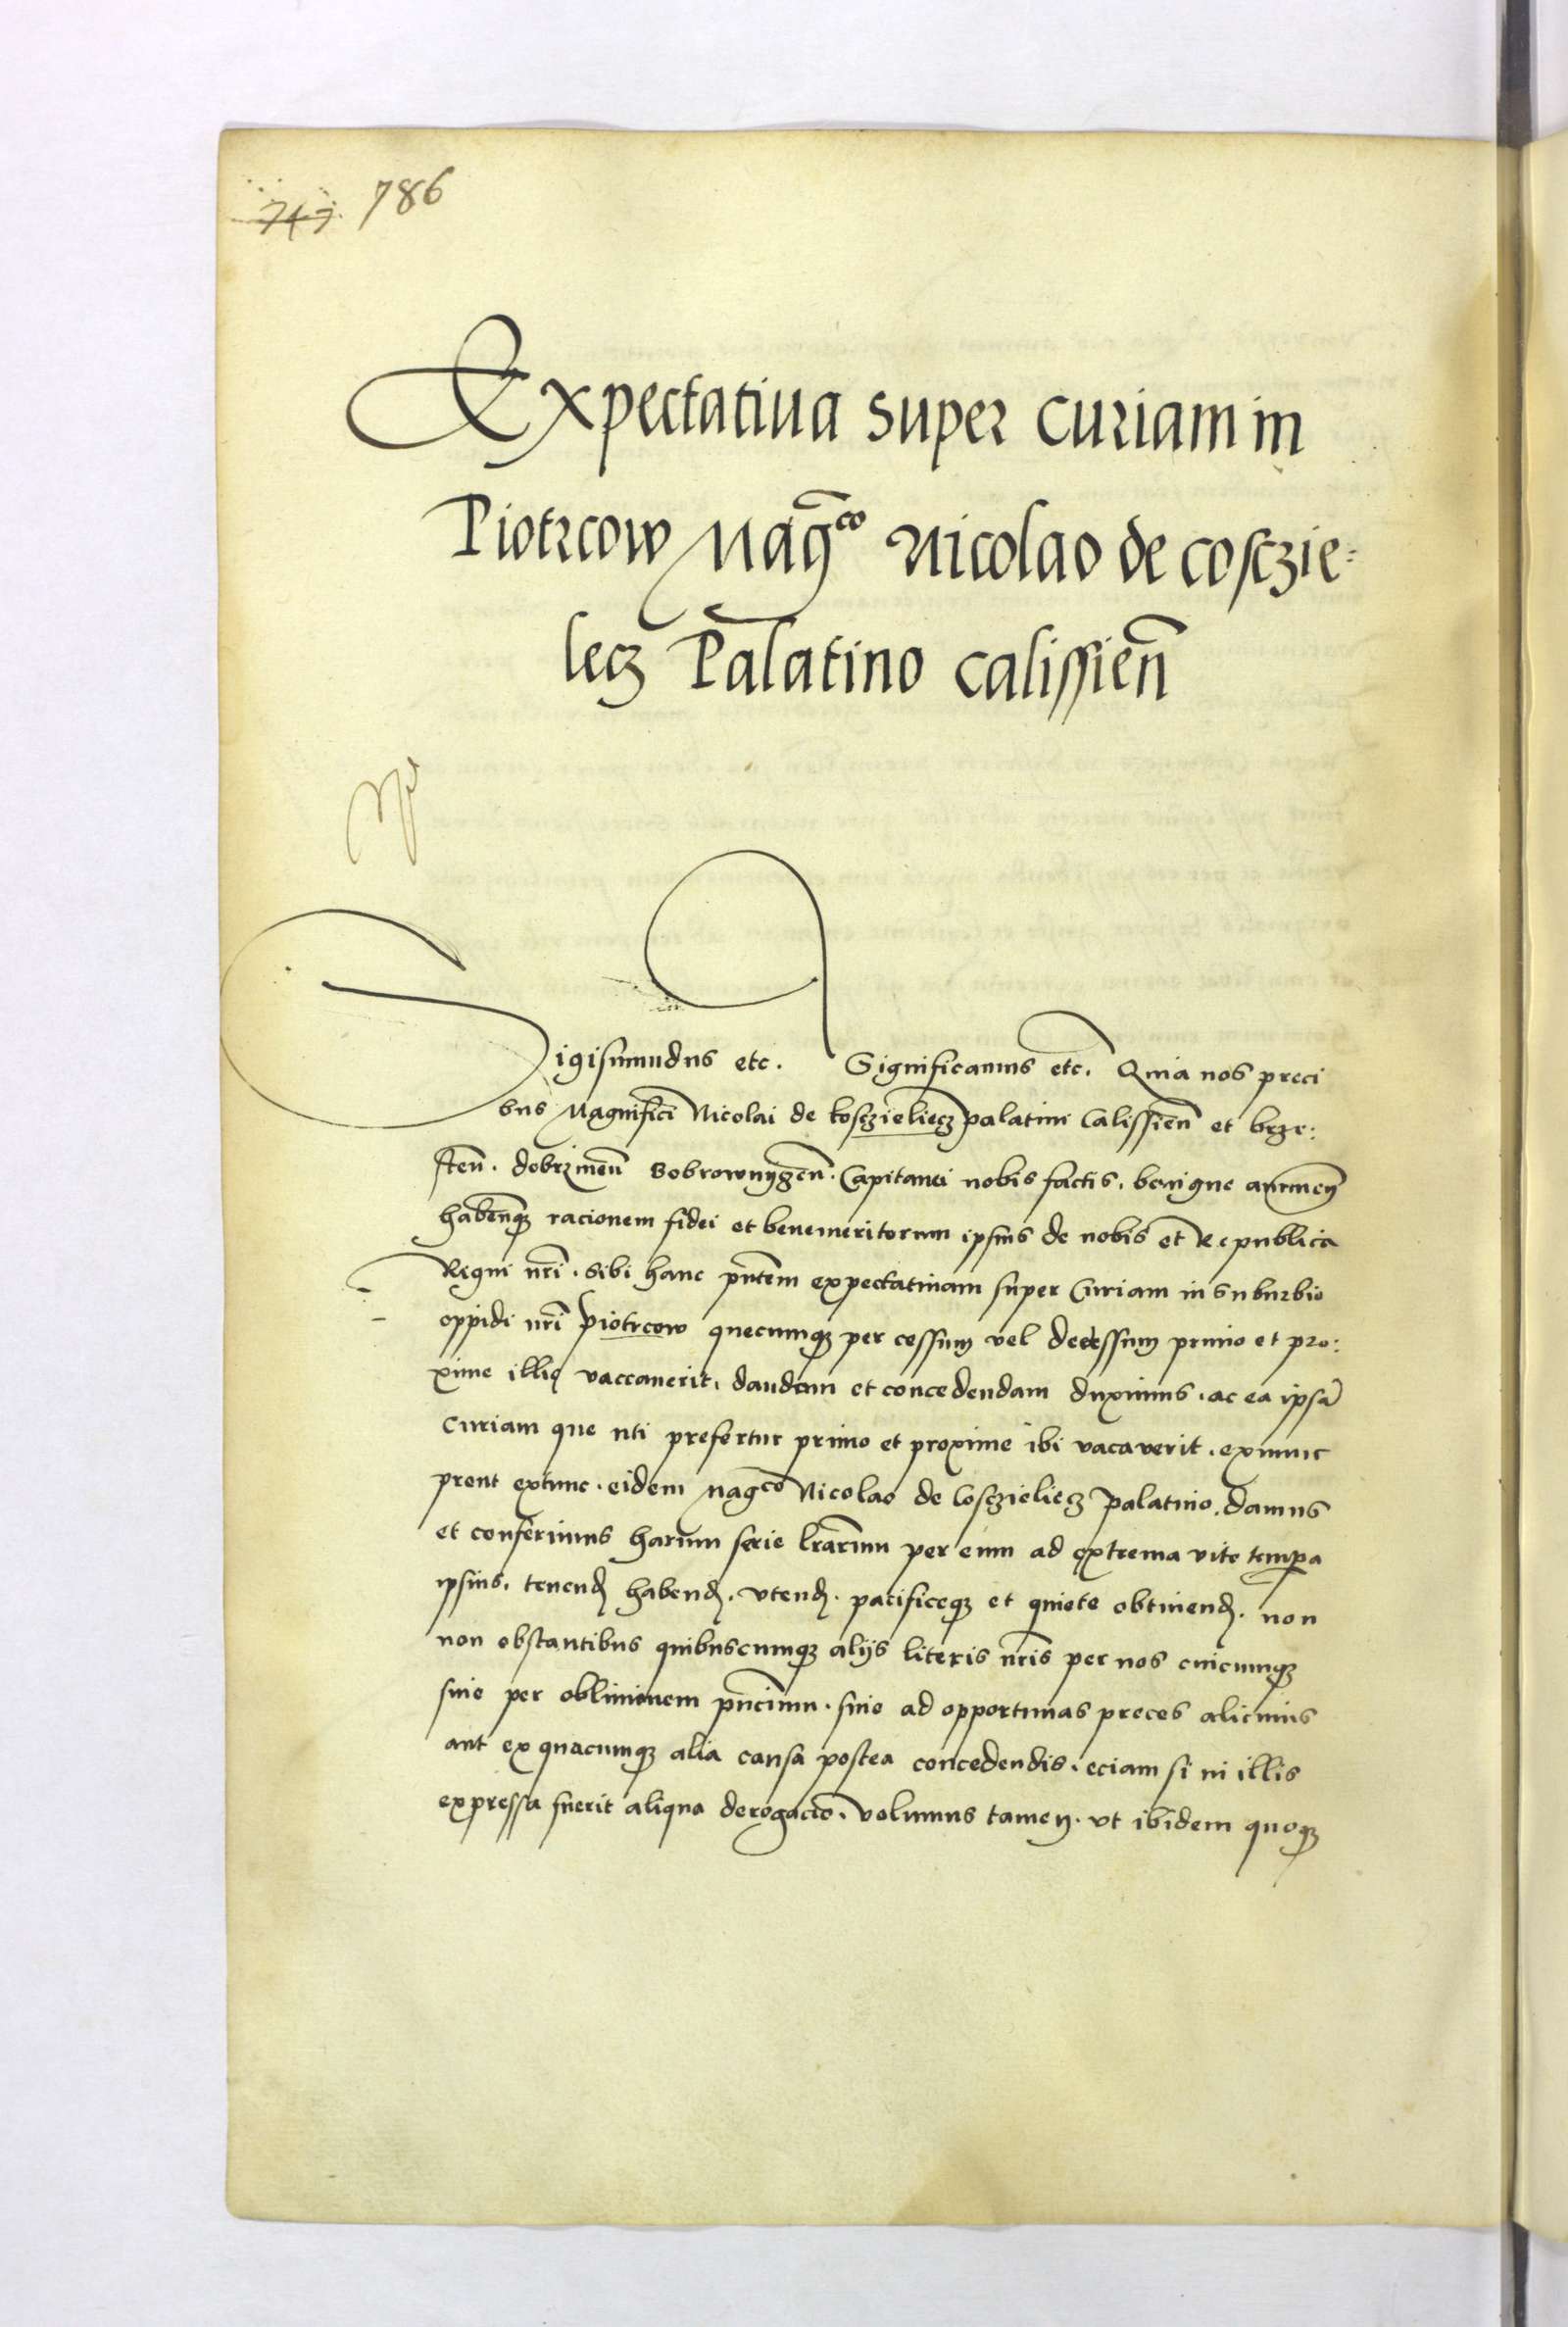 747. 786
Expectatiua super curiam in
Piotrcow Mag͞co Nicolao de cosczie=
lecz Palatino calissien̄
Sigismundus etc. Significamus etc. Quia nos preci
bus Magnifici Nicolai de kosczieliecz palatini Calissien̄ et brze:
sten̄. dobrzinen̄ Bobrownyczen̄. Capitanei nobis factis, benigne
haben̄q racionem fidei et benemeritorum ipsius de nobis et Republica
Regni nr̄i. Sibi hanc pn̄tem expectatiuam super Curiam in suburbio
oppidi nr̄i Piotrcow quecumq per cessum vel decessum primo et pro:
xime illic vaccauerit, dandam et concedendam duximus. ac ea ipsā
Curiam que uti prefertur primo et proxime ibi vacaverit. exnunc
prout extunc. eidem Mag͞co Nicolao de Cosczieliecz palatino. damus
et conferimus harum serie lr̄arum per eum ad extrema vite tempa
ipsius. tenend habend. vtend. pacificeq et quiete obtinend. non
non obstantibus quibuscumq alijs literis nr̄is per nos cuicumq
siue per obliuionem pn̄cium. siue ad opportunas preces alicuius
aut ex quacumq alia causa postea concedendis. eciam si in illis
expressa fuerit aliqua derogacio. Volumus tamen. vt ibidem quoq